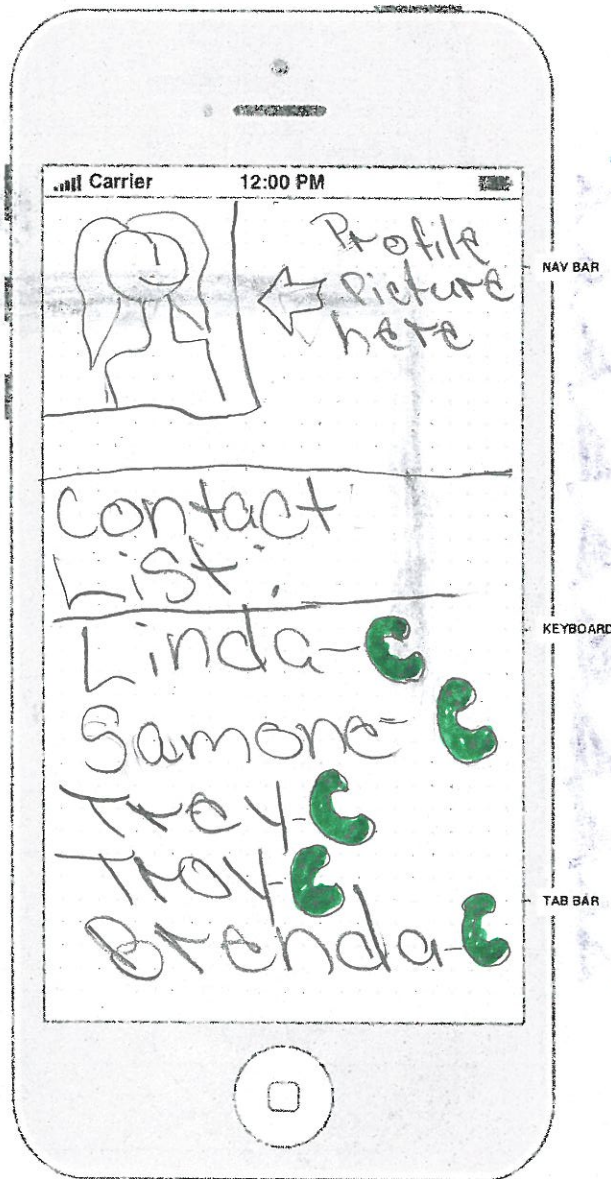 Carrier 12:00 PM
Profile
Picture
here
NAV BAR
Contact
List:
KEYBOARD
Linda-
Samone-
Trey-
Troy-
TAB BAR
Brenda-